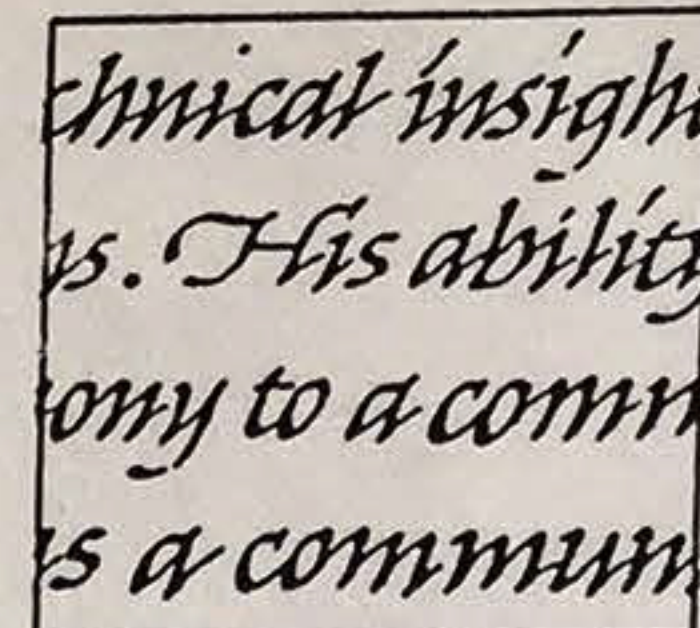 chnical insigh
is. His ability
ony to a comm
is a commun